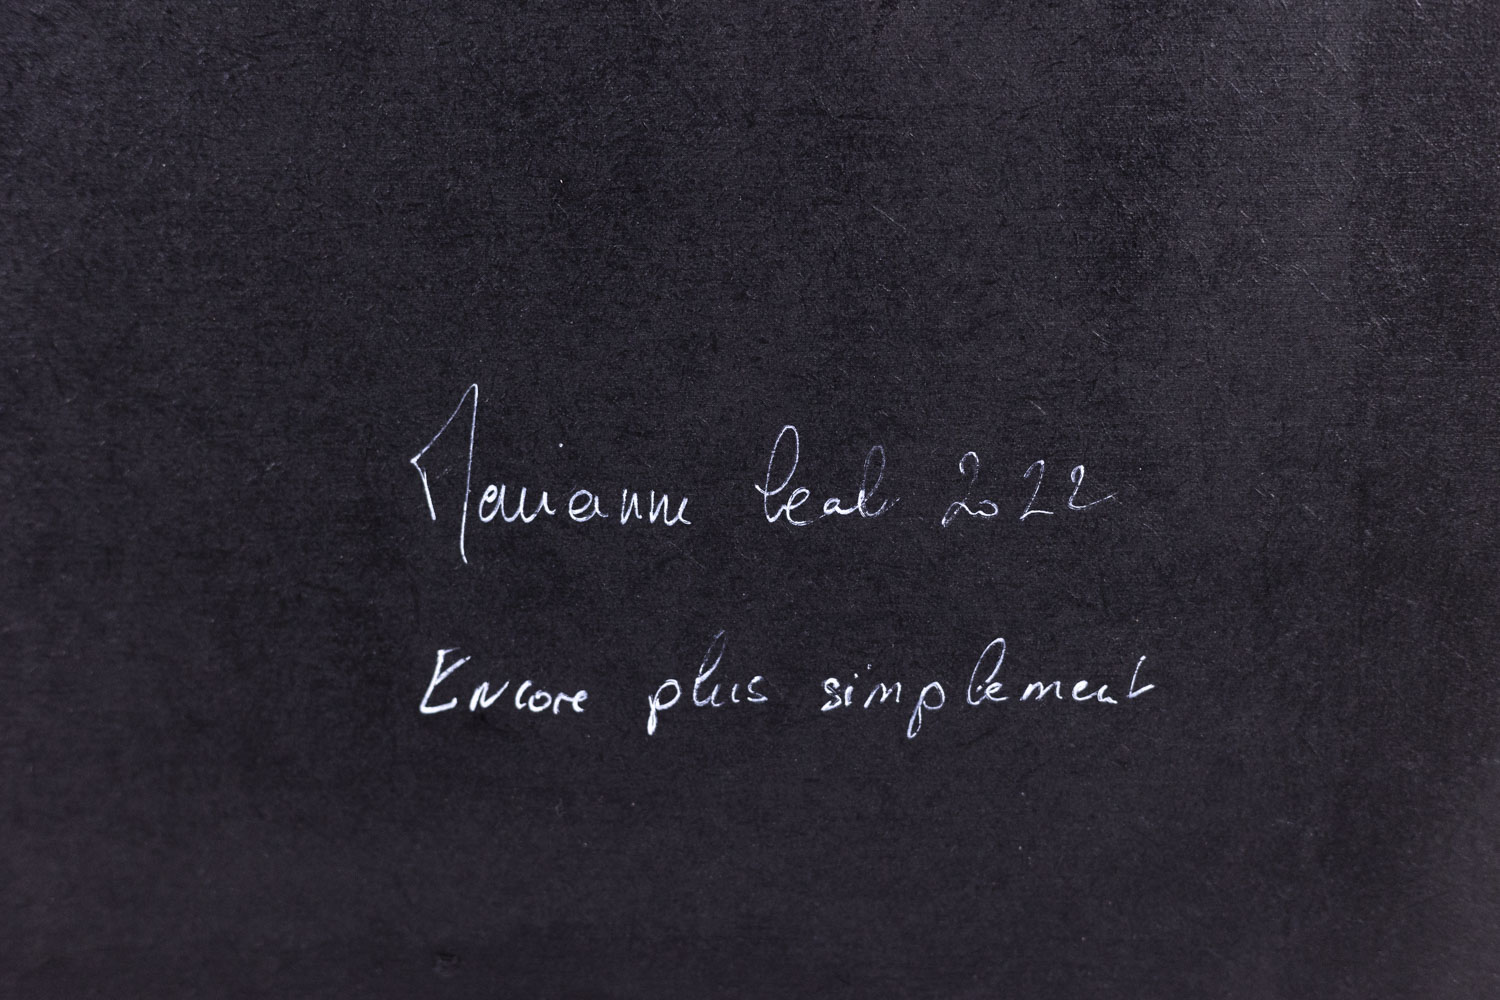 Marianne Leal 2022
Encore plus simplement